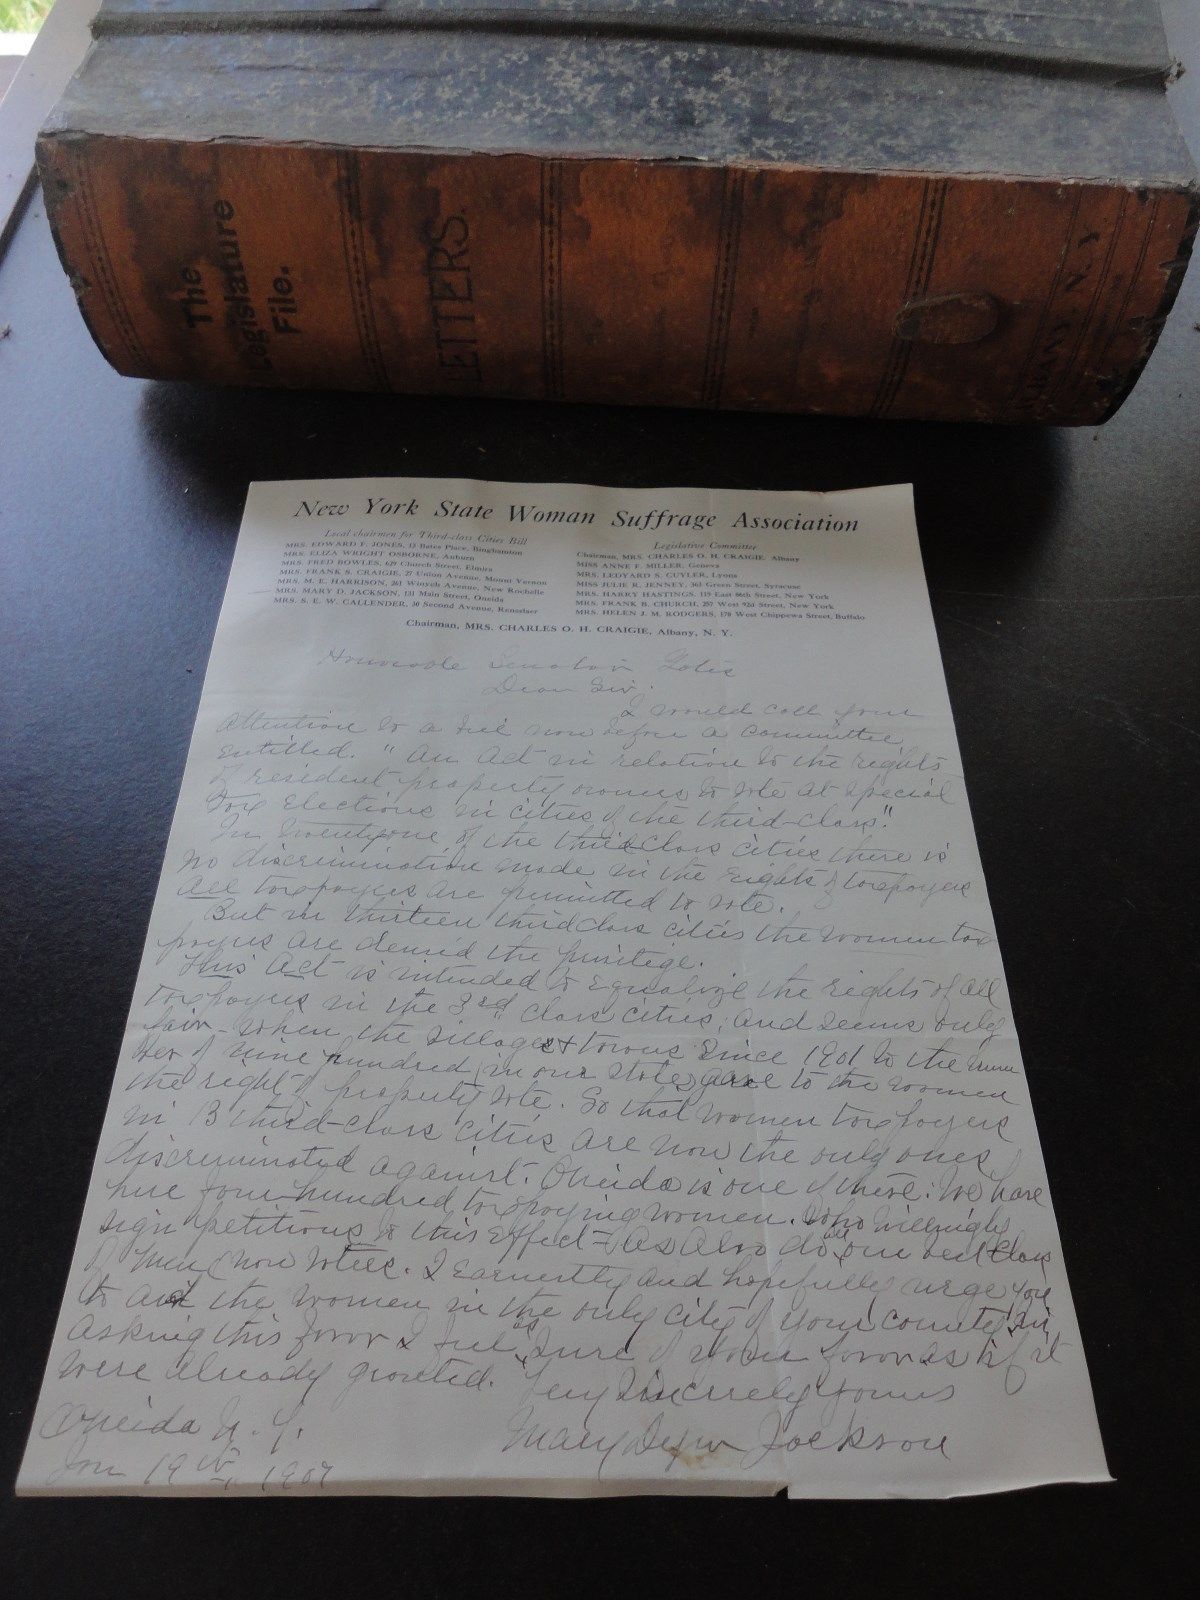 The
Legislature
File.
LETTERS.
ALBANY, N. Y.
New York State Woman Suffrage Association
Local chairmen for Third-class Cities Bill
MRS. EDWARD F. JONES, 13 Bates Place, Binghamton
MRS. ELIZA WRIGHT OSBORNE, Auburn
MRS. FRED BOWLES, 629 Church Street, Elmira
MRS. FRANK S. CRAIGIE, 27 Union Avenue, Mount Vernon
MRS. M. E. HARRISON, 261 Winyah Avenue, New Rochelle
MRS. MARY D. JACKSON, 131 Main Street, Oneida
MRS. S. E. W. CALLENDER, 30 Second Avenue, Rensselaer
Legislative Committee
Chairman, MRS. CHARLES O. H. CRAIGIE, Albany
MISS ANNE F. MILLER, Geneva
MRS. LEDYARD S. CUYLER, Lyons
MISS JULIE R. JENNEY, 363 Green Street, Syracuse
MRS. HARRY HASTINGS, 119 East 86th Street, New York
MRS. FRANK B. CHURCH, 257 West 92d Street, New York
MRS. HELEN J. M. RODGERS, 178 West Chippewa Street, Buffalo
Chairman, MRS. CHARLES O. H. CRAIGIE, Albany, N. Y.
Honorable Senator
Dear Sir.
I would call your
attention to a bill now before a committee
entitled. "An Act in relation to the rights
of resident property owners to vote at special
tax elections in cities of the third-class."
In twentyone of the third class cities there is
no discrimination made in the rights of taxpayers
All taxpayers are permitted to vote.
But in thirteen third class cities the women tax
payers are denied the privilege.
This Act is intended to equalize the rights of all
taxpayers in the 3rd class cities, and seems only
fair - when the villages & towns since 1901 to the num
ber of nine hundred in our state gave to the women
the right of property vote. So that women taxpayers
in 13 third-class cities are now the only ones
discriminated against. Oneida is one of these. We have
here four-hundred taxpaying women. who willingly
sign petitions to this effect - As also do all our best class
of men now voters. I earnestly and hopefully urge you
to aid the women in the only city of your county, in
asking this favor I feel as sure of your favor as if it
were already granted. Very sincerely yours
Oneida N. Y. Mary Jackson
Jan 19th 1907